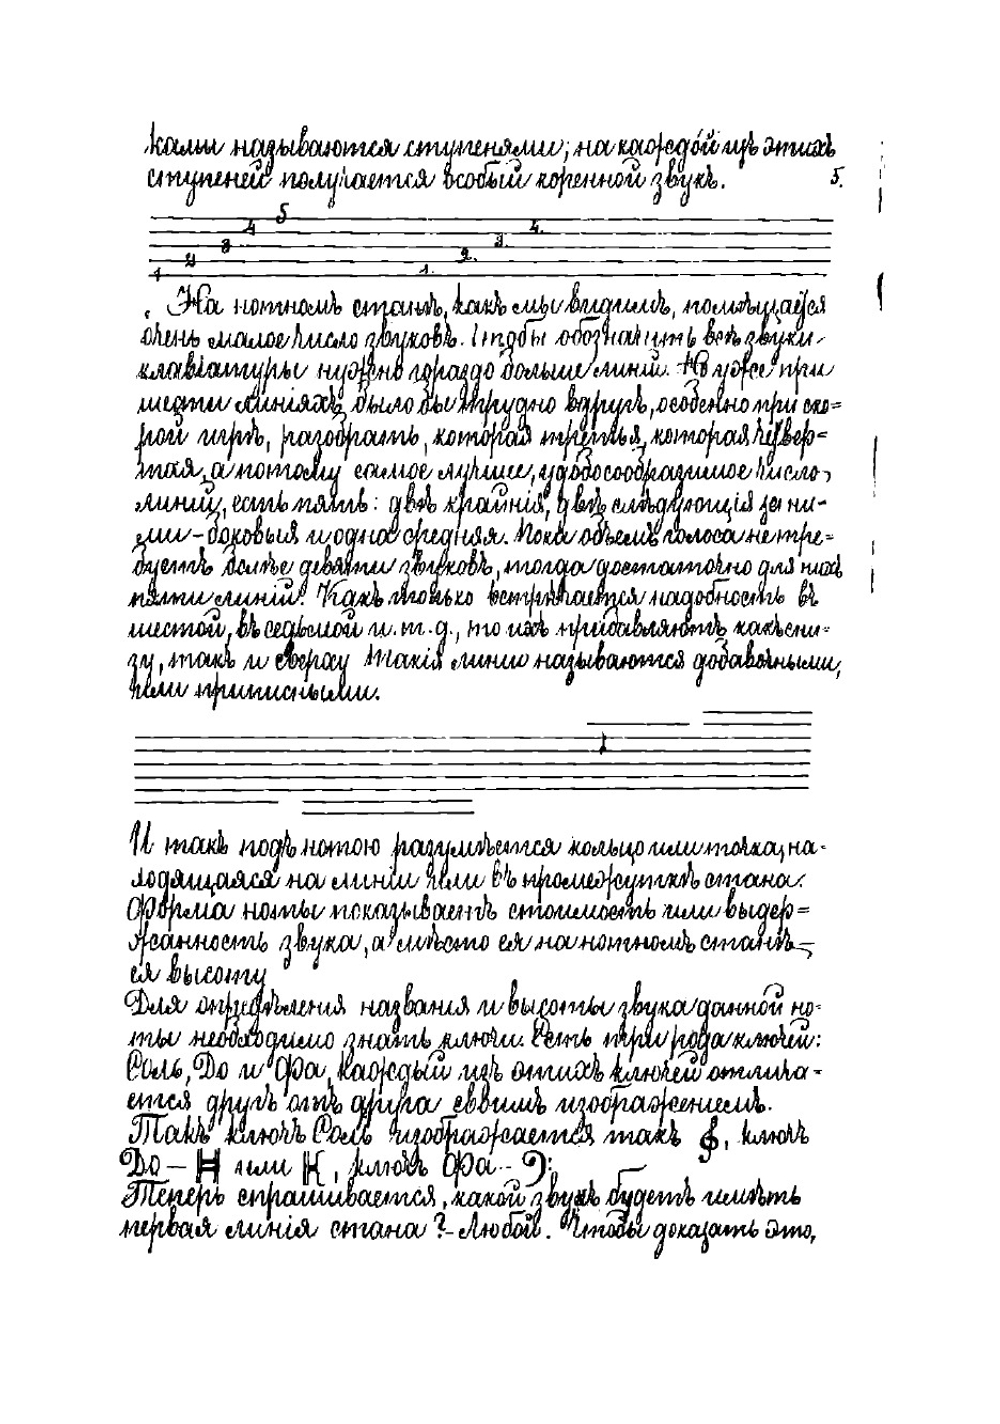 ками называются ступенями; на каждой изъ этихъ
ступеней получается особый коренной звукъ. 5.
5
4 4.
3 3.
2 2.
1 1.
На нотномъ станѣ, какъ мы видимъ, помѣщается
очень малое число звуковъ. Чтобы обозначить всѣ звуки
клавіатуры нужно гораздо больше линій. Но уже при
шести линіяхъ было бы трудно вдругъ, особенно при ско=
рой игрѣ, разобрать, которая третья, которая четвер=
тая, а потому самое лучшее, удобосообразимое число
линій, есть пять: двѣ крайнія, двѣ слѣдующія за ни-
ми – боковыя и одна средняя. Пока объемъ голоса не тре=
буетъ болѣе девяти звуковъ, тогда достаточно для нихъ
пяти линій. Какъ только встрѣчается надобность въ
шестой, въ седьмой и. т. д., то ихъ прибавляютъ какъ сни-
зу, такъ и сверху Такія линіи называются добавочными,
или приписными.
И такъ подъ нотою разумѣется кольцо или точка, на-
ходящаяся на линіи или въ промежуткѣ стана.
Форма ноты показываетъ стоимость или выдер=
жанность звука, а мѣсто ея на нотномъ станѣ –
ея высоту
Для опредѣленія названія и высоты звука данной но-
ты необходимо знать ключи. Есть три рода ключей:
Соль, До и Фа, каждый изъ этихъ ключей отлича-
ется другъ отъ друга своимъ изображеніемъ.
Такъ ключъ Соль изображается такъ 𝄞, ключъ
До – или , ключъ Фа – 𝄢
Теперь спрашивается, какой звукъ будетъ имѣть
первая линія стана? – Любой. Чтобы доказать это,